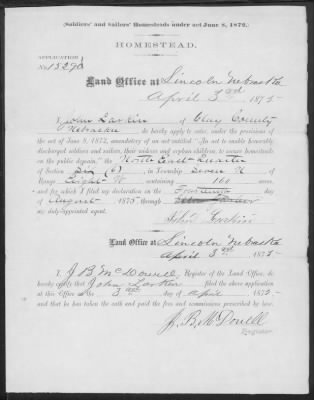 (Soldiers' and Sailors' Homesteads under act June 8, 1872.)
HOMESTEAD.
APPLICATION
No. 15290
Land Office at Lincoln Nebraska
April 3rd 1875
I, John Larkin of Clay County
Nebraska do hereby apply to enter, under the provisions of
the act of June 8, 1872, amendatory of an act entitled "An act to enable
honorably discharged soldiers and sailors, their widows and orphan children, to secure homesteads
on the public domain," the North East Quarter
of Section Six (6), in Township Seven N of
Range Eight W containing 160 acres,
and for which I filed my declaration on the
day of
August 1873 through
my duly-appointed agent.
John Larkin
Land Office at Lincoln Nebraska
April 3rd 1875
I, J B McDowell, Register of the Land Office, do
hereby certify that John Larkin filed the above application
at this Office on the 3rd day of April 1875
and that he has taken the oath and paid the fees and commissions prescribed by law.
J. B. McDowell
Register